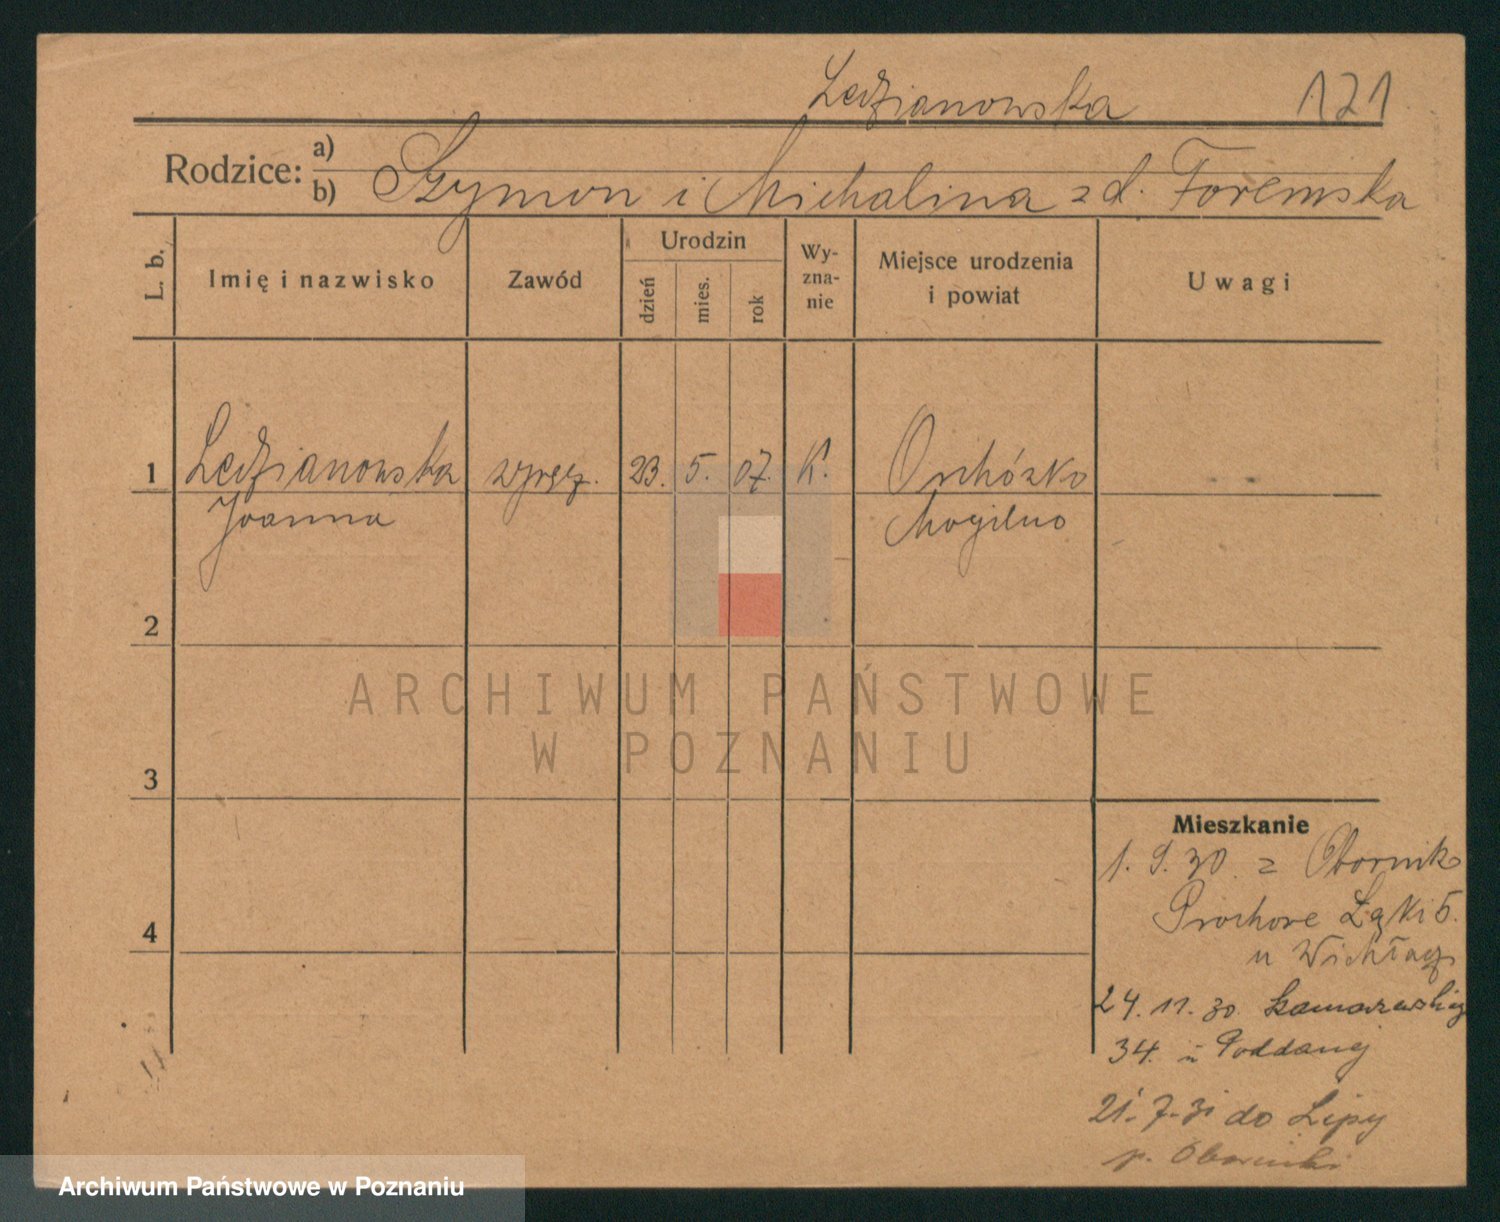 Ledzianowska 171
Rodzice: a)
b) Szymon i Michalina z d. Foremska
L. b.
Imię i nazwisko
Zawód
Urodzin
dzień
mies.
rok
Wy-
zna-
nie
Miejsce urodzenia
i powiat
Uwagi
1 Ledzianowska 23. 5. 07. K.
Joanna Mogilno
2
3
4
Mieszkanie
1. 9. 30. z Obornik
Łąki 5.
u
24. 11. 30.
34. u Poddanej
21. 7. 31 do Lipy
p. Oborniki
ARCHIWUM PAŃSTWOWE
W POZNANIU
Archiwum Państwowe w Poznaniu